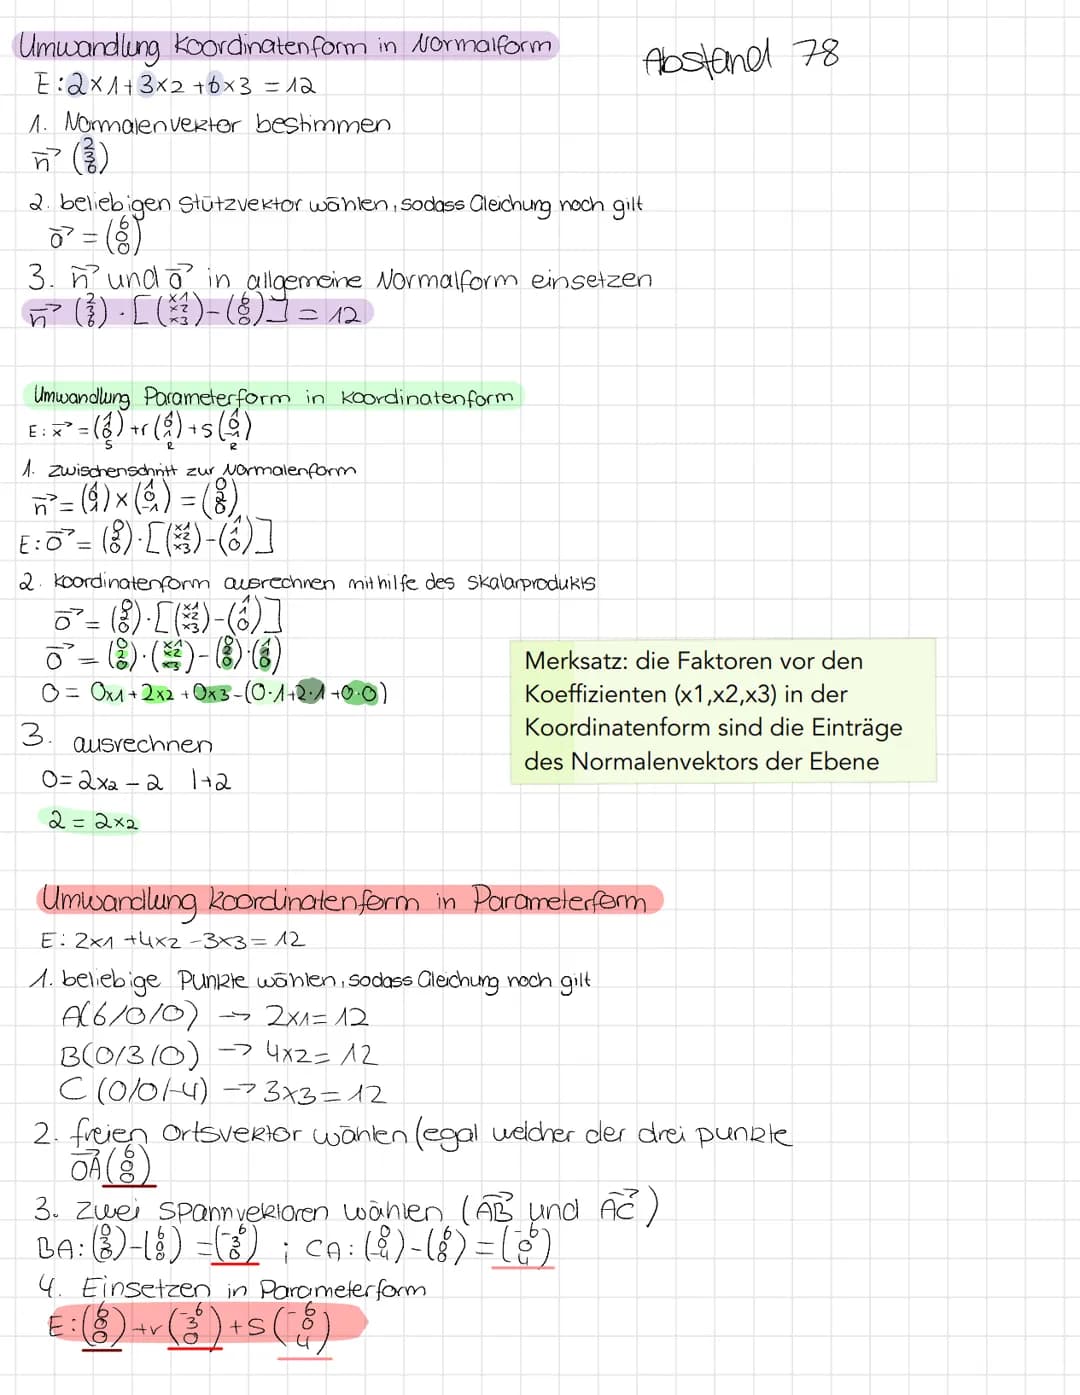 Umwandlung Koordinatenform in Normalform
Abstand 78
E: 2x1+3x2+6x3 = 12
1. Normalenvektor bestimmen
n→ (2 3 6)
2. beliebigen Stützvektor wählen, sodass Gleichung noch gilt
o→ = (6 0 0)
3. n→ und o→ in allgemeine Normalform einsetzen
n→ (2 3 6) · [(x1 x2 x3) - (6 0 0)] = 12
Umwandlung Parameterform in Koordinatenform
E: x→ = (1 1 0) + r (1 0 1) + s (1 0 -1)
S R R
1. Zwischenschritt zur Normalenform
n→ = (1 0 1) × (1 0 -1) = (0 2 0)
E: o→ = (0 2 0) · [(x1 x2 x3) - (1 1 0)]
2. Koordinatenform ausrechnen mithilfe des Skalarprodukts
o→ = (0 2 0) · [(x1 x2 x3) - (1 1 0)]
o→ = (0 2 0) · (x1 x2 x3) - (0 2 0) · (1 1 0)
0 = 0x1 + 2x2 + 0x3 - (0·1+2·1+0·0)
3. ausrechnen
0 = 2x2 - 2 |+2
2 = 2x2
Merksatz: die Faktoren vor den
Koeffizienten (x1,x2,x3) in der
Koordinatenform sind die Einträge
des Normalenvektors der Ebene
Umwandlung Koordinatenform in Parameterform
E: 2x1 + 4x2 - 3x3 = 12
1. beliebige Punkte wählen, sodass Gleichung noch gilt
A(6/0/0) → 2x1 = 12
B(0/3/0) → 4x2 = 12
C(0/0/-4) → 3x3 = 12
2. freien Ortsvektor wählen (egal welcher der drei punkte
OA→ (6 0 0)
3. zwei Spannvektoren wählen (AB→ und AC→)
BA: (0 3 0) - (6 0 0) = (-6 3 0) ; CA: (0 0 4) - (6 0 0) = (-6 0 4)
4. Einsetzen in Parameterform
E: (6 0 0) + r (-6 3 0) + s (-6 0 4)